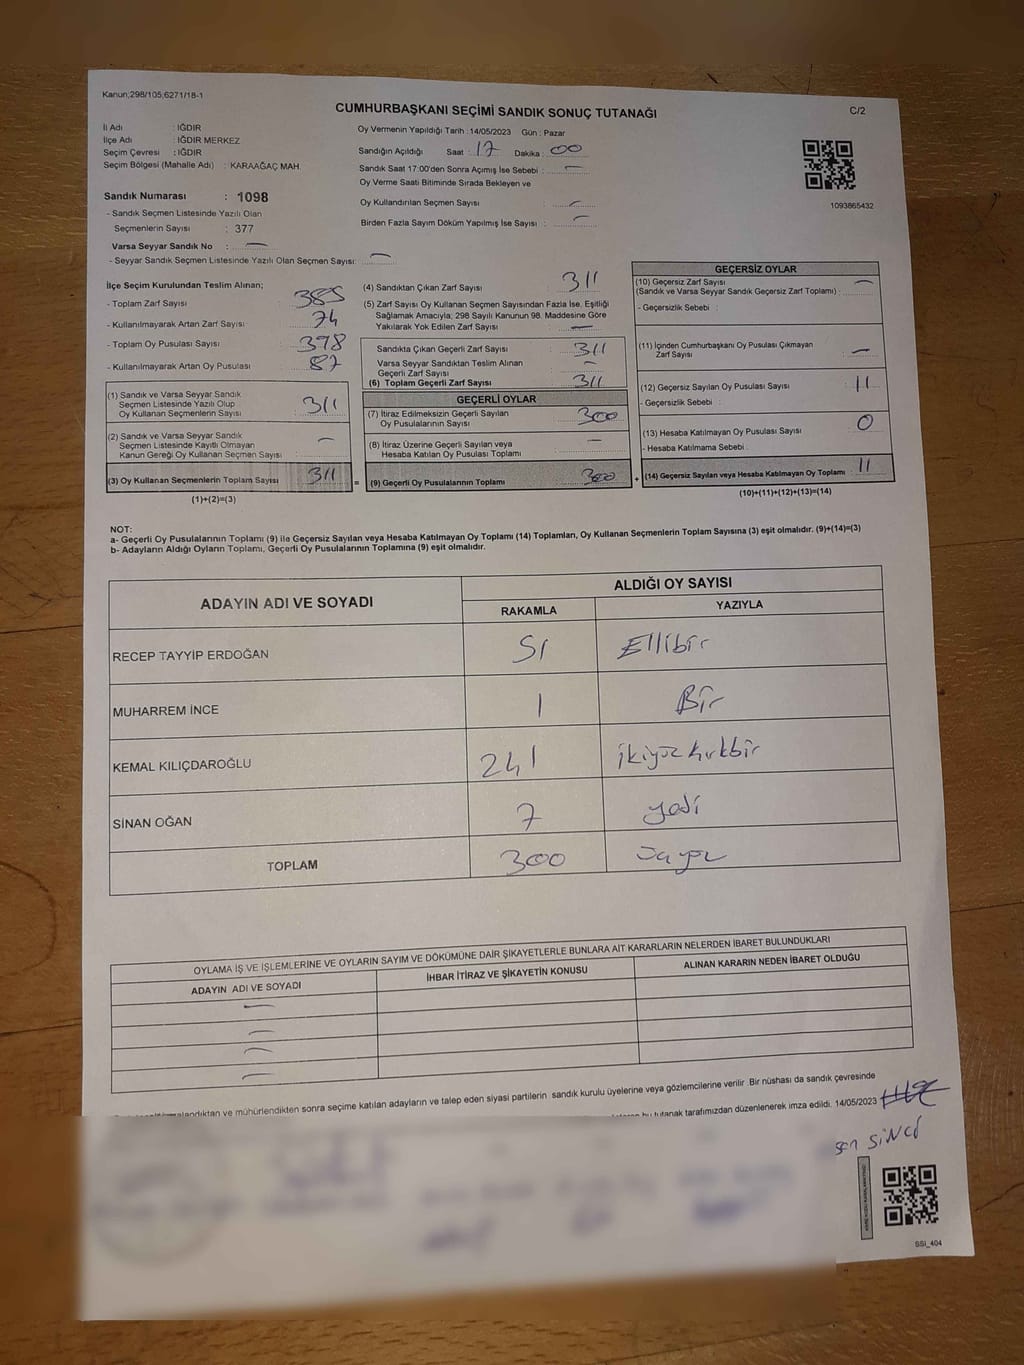 Kanun;298/105,6271/18-1
CUMHURBAŞKANI SEÇİMİ SANDIK SONUÇ TUTANAĞI
C/2
İl Adı : IĞDIR
İlçe Adı : IĞDIR MERKEZ
Seçim Çevresi : IĞDIR
Seçim Bölgesi (Mahalle Adı) : KARAAĞAÇ MAH.
Sandık Numarası : 1098
- Sandık Seçmen Listesinde Yazılı Olan
Seçmenlerin Sayısı : 377
Varsa Seyyar Sandık No : —
- Seyyar Sandık Seçmen Listesinde Yazılı Olan Seçmen Sayısı: —
Oy Vermenin Yapıldığı Tarih :14/05/2023 Gün : Pazar
Sandığın Açıldığı Saat : 17 Dakika : 00
Sandık Saat 17:00'den Sonra Açımış İse Sebebi : —
Oy Verme Saati Bitiminde Sırada Bekleyen ve
Oy Kullandırılan Seçmen Sayısı : —
Birden Fazla Sayım Döküm Yapılmış İse Sayısı : —
1093865432
İlçe Seçim Kurulundan Teslim Alınan;
- Toplam Zarf Sayısı : 385
- Kullanılmayarak Artan Zarf Sayısı : 74
- Toplam Oy Pusulası Sayısı : 398
- Kullanılmayarak Artan Oy Pusulası : 87
(1) Sandık ve Varsa Seyyar Sandık
Seçmen Listesinde Yazılı Olup
Oy Kullanan Seçmenlerin Sayısı : 311
(2) Sandık ve Varsa Seyyar Sandık
Seçmen Listesinde Kayıtlı Olmayan
Kanun Gereği Oy Kullanan Seçmen Sayısı : —
(3) Oy Kullanan Seçmenlerin Toplam Sayısı : 311
(1)+(2)=(3)
(4) Sandıktan Çıkan Zarf Sayısı : 311
(5) Zarf Sayısı Oy Kullanan Seçmen Sayısından Fazla İse, Eşitliği
Sağlamak Amacıyla; 298 Sayılı Kanunun 98. Maddesine Göre
Yakılarak Yok Edilen Zarf Sayısı : —
Sandıkta Çıkan Geçerli Zarf Sayısı : 311
Varsa Seyyar Sandıktan Teslim Alınan
Geçerli Zarf Sayısı : —
(6) Toplam Geçerli Zarf Sayısı : 311
GEÇERLİ OYLAR
(7) İtiraz Edilmeksizin Geçerli Sayılan
Oy Pusulalarının Sayısı : 300
(8) İtiraz Üzerine Geçerli Sayılan veya
Hesaba Katılan Oy Pusulası Toplamı : —
= (9) Geçerli Oy Pusulalarının Toplamı : 300
GEÇERSİZ OYLAR
(10) Geçersiz Zarf Sayısı : —
(Sandık ve Varsa Seyyar Sandık Geçersiz Zarf Toplamı) :
- Geçersizlik Sebebi :
(11) İçinden Cumhurbaşkanı Oy Pusulası Çıkmayan
Zarf Sayısı : —
(12) Geçersiz Sayılan Oy Pusulası Sayısı : 11
- Geçersizlik Sebebi :
(13) Hesaba Katılmayan Oy Pusulası Sayısı : 0
- Hesaba Katılmama Sebebi :
+ (14) Geçersiz Sayılan veya Hesaba Katılmayan Oy Toplamı : 11
(10)+(11)+(12)+(13)=(14)
NOT:
a- Geçerli Oy Pusulalarının Toplamı (9) ile Geçersiz Sayılan veya Hesaba Katılmayan Oy Toplamı (14) Toplamları, Oy Kullanan Seçmenlerin Toplam Sayısına (3) eşit olmalıdır. (9)+(14)=(3)
b- Adayların Aldığı Oyların Toplamı, Geçerli Oy Pusulalarının Toplamına (9) eşit olmalıdır.
ADAYIN ADI VE SOYADI
ALDIĞI OY SAYISI
RAKAMLA YAZIYLA
RECEP TAYYİP ERDOĞAN 51 Ellibir
MUHARREM İNCE 1 Bir
KEMAL KILIÇDAROĞLU 241 ikiyüzkırkbir
SİNAN OĞAN 7 yedi
TOPLAM 300
OYLAMA İŞ VE İŞLEMLERİNE VE OYLARIN SAYIM VE DÖKÜMÜNE DAİR ŞİKAYETLERLE BUNLARA AİT KARARLARIN NELERDEN İBARET BULUNDUKLARI
ADAYIN ADI VE SOYADI İHBAR İTİRAZ VE ŞİKAYETİN KONUSU ALINAN KARARIN NEDEN İBARET OLDUĞU
—
—
—
—
sonra seçime katılan adayların ve talep eden siyasi partilerin sandık kurulu üyelerine veya gözlemcilerine verilir .Bir nüshası da sandık çevresinde
bu tutanak tarafımızdan düzenlenerek imza edildi. 14/05/2023
SSİ_404